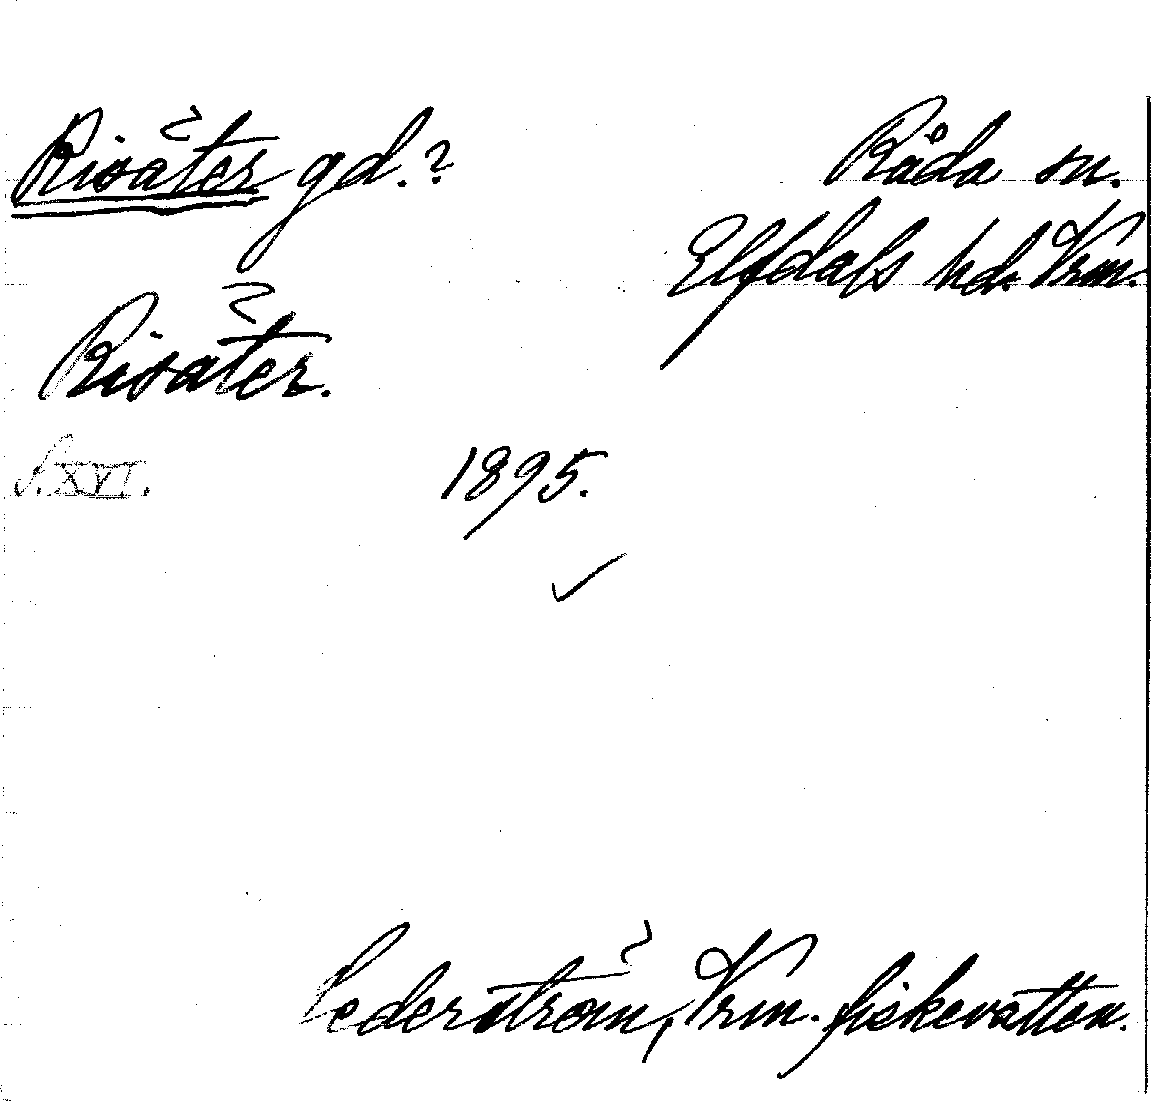 Risäter gd.?
Råda sn.
Elfdals hd. Vrm.
Risäter.
S. XVI.
1895.
Cederström, Vrm. fiskevatten.